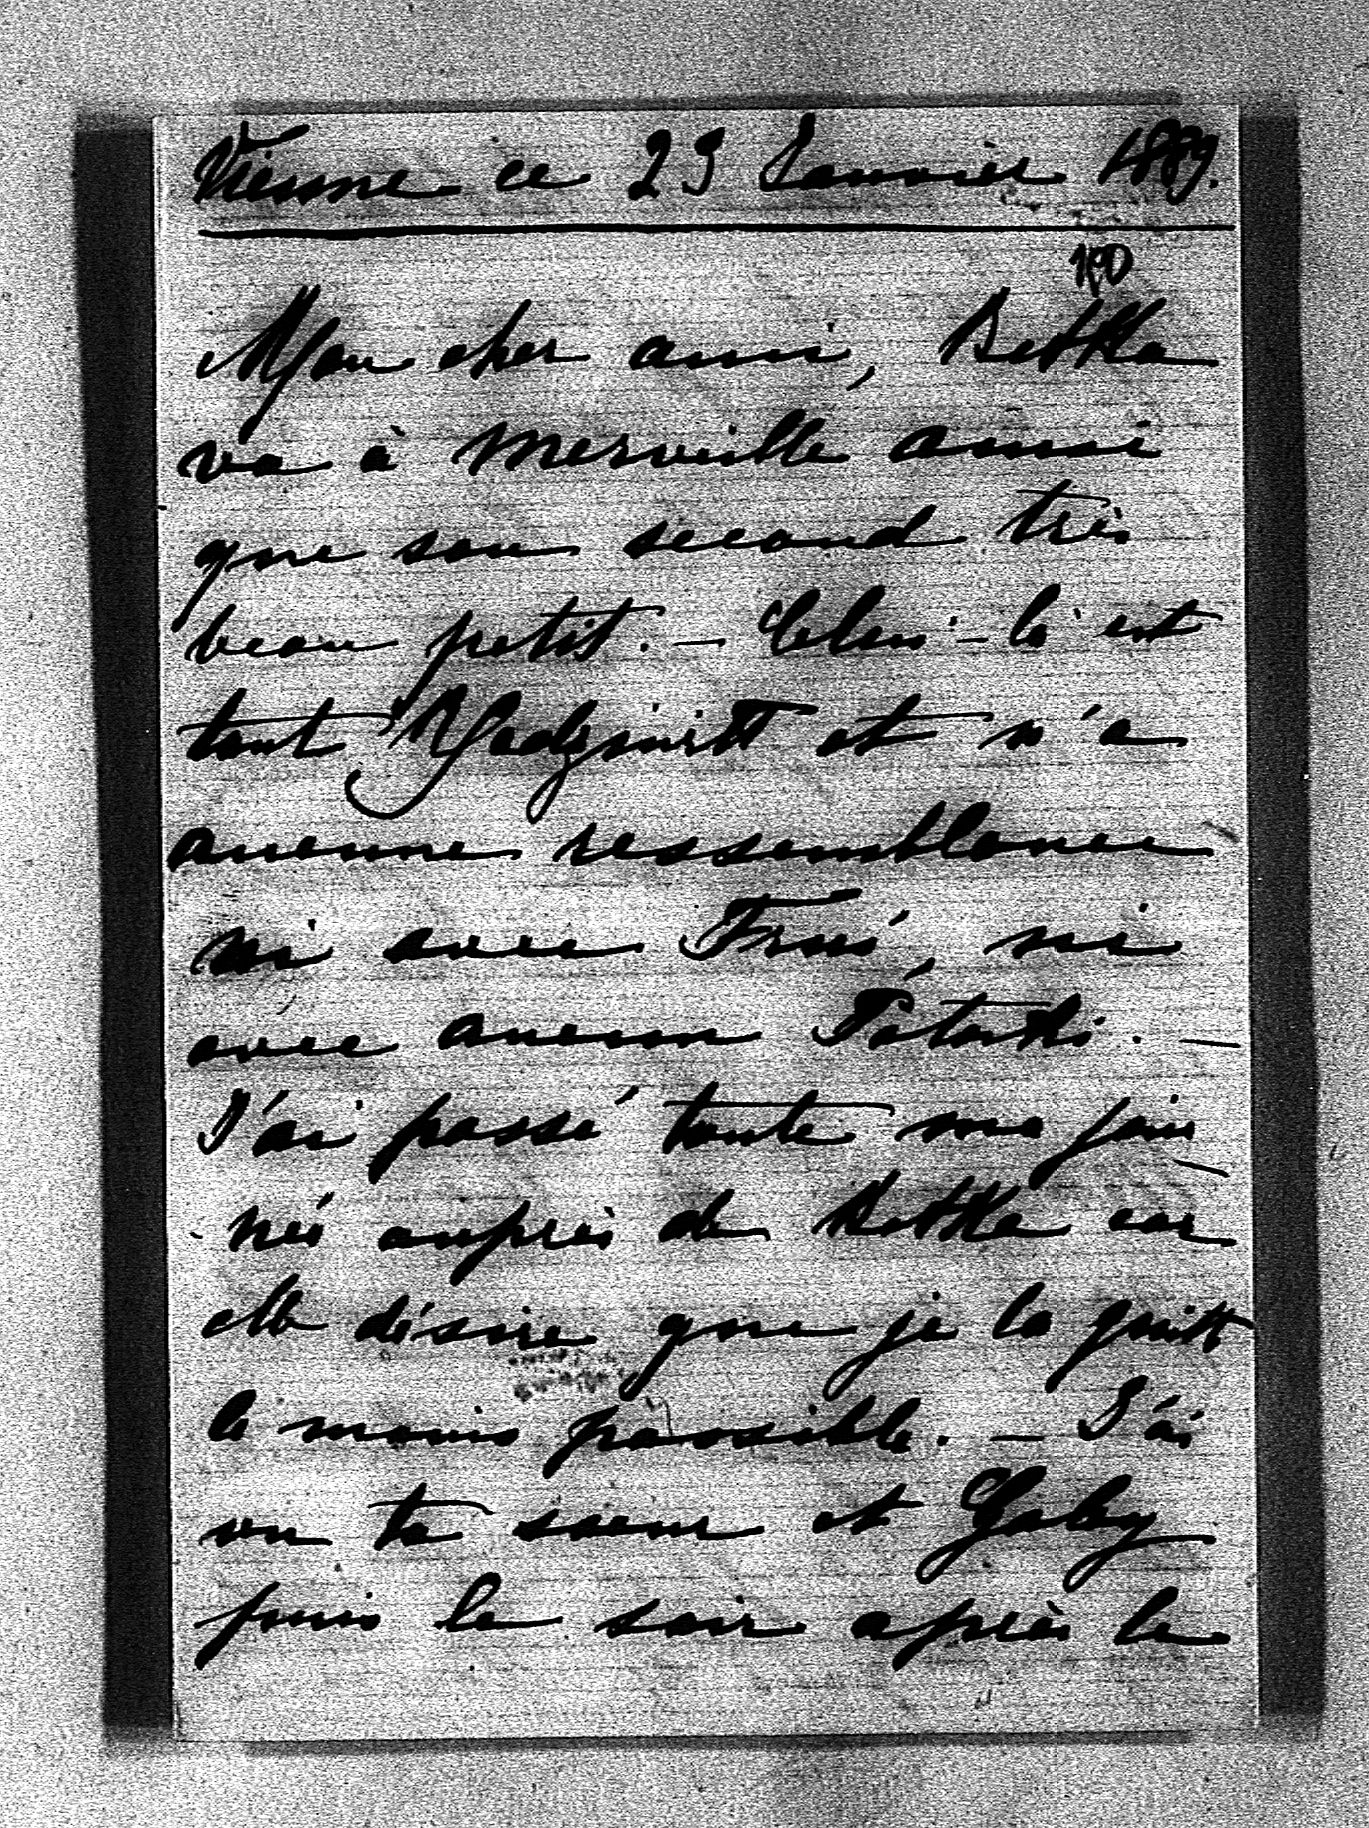 Vienne ce 29 Janvier 1889.
190
Mon cher ami, Betka
va à merveille ainsi
que son second très
beau petit. — Celui-là est
tout Radziwill et n'a
aucune ressemblance
ni avec Frusi, ni
avec aucun Potocki. —
J'ai passé toute ma jour
née auprès de Betka car
elle désire que je la quitte
le moins possible. — J'ai
vu ta soeur et Gaby
puis le soir après le